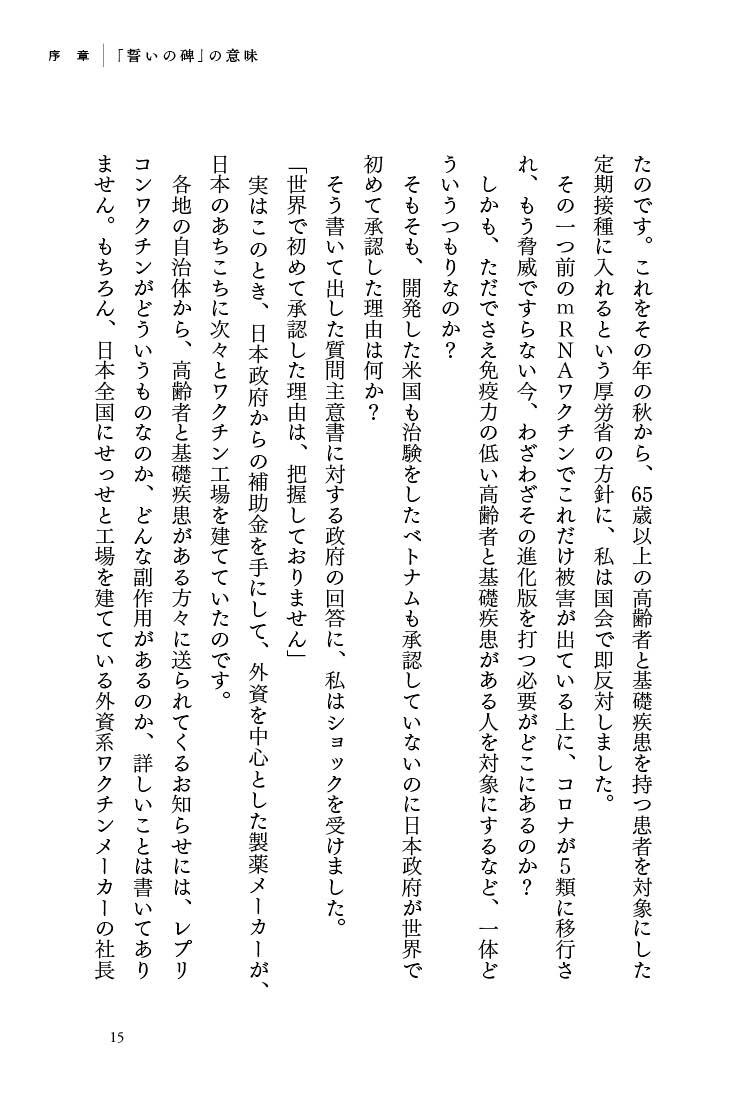 序　章｜「誓いの碑」の意味
たのです。これをその年の秋から、65歳以上の高齢者と基礎疾患を持つ患者を対象にした
定期接種に入れるという厚労省の方針に、私は国会で即反対しました。
　その一つ前のｍＲＮＡワクチンでこれだけ被害が出ている上に、コロナが５類に移行さ
れ、もう脅威ですらない今、わざわざその進化版を打つ必要がどこにあるのか？
　しかも、ただでさえ免疫力の低い高齢者と基礎疾患がある人を対象にするなど、一体ど
ういうつもりなのか？
　そもそも、開発した米国も治験をしたベトナムも承認していないのに日本政府が世界で
初めて承認した理由は何か？
　そう書いて出した質問主意書に対する政府の回答に、私はショックを受けました。
「世界で初めて承認した理由は、把握しておりません」
　実はこのとき、日本政府からの補助金を手にして、外資を中心とした製薬メーカーが、
日本のあちこちに次々とワクチン工場を建てていたのです。
　各地の自治体から、高齢者と基礎疾患がある方々に送られてくるお知らせには、レプリ
コンワクチンがどういうものなのか、どんな副作用があるのか、詳しいことは書いてあり
ません。もちろん、日本全国にせっせと工場を建てている外資系ワクチンメーカーの社長
15